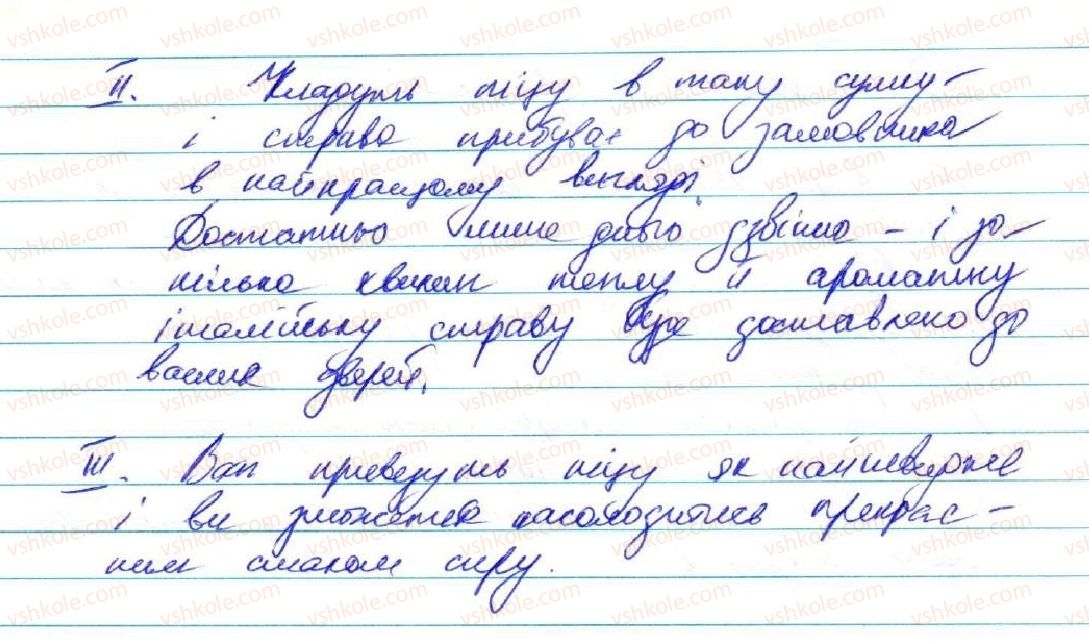 II. Кладуть піцу в таку сумку
і страва прибуває до замовника
в найкращому вигляді.
Достатньо лише дного дзвінка - і за
кілька хвилин теплу й ароматну
італійську страву буде доставлено до
ваших дверей.
III. Вам привезуть піцу як найшвидше
і ви зможете насолодитись прекрас-
ним смаком сиру.
vshkole.com